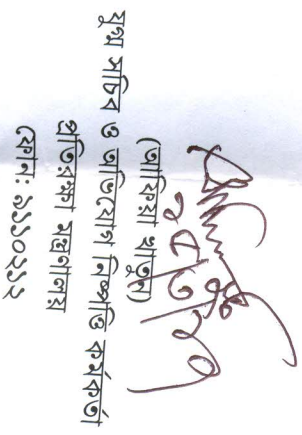 (আফিয়া খাতুন)
যুগ্ম সচিব ও অভিযোগ নিষ্পত্তি কর্মকর্তা
প্রতিরক্ষা মন্ত্রণালয়
ফোন: ৯১১০২১২